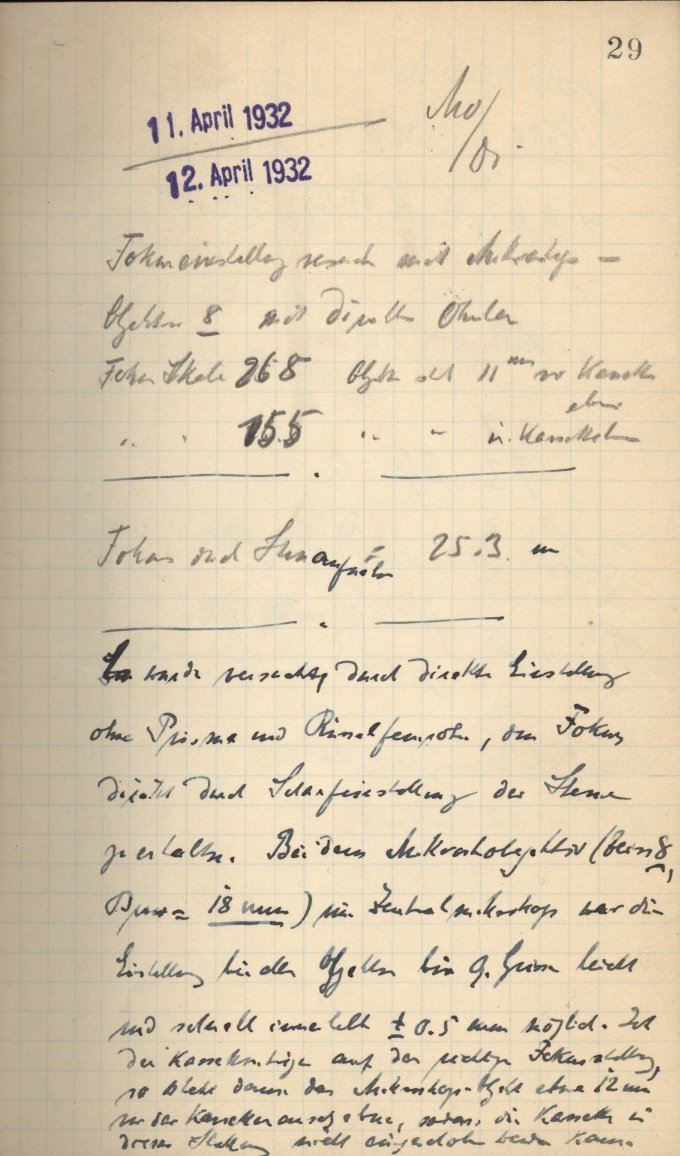 29
11. April 1932
12. April 1932
Fokuseinstellung versucht mit Mikroskop-
Objektiv 8 mit
Fokus Skala 26.8 Objektiv 11 mm vor Kassetten
ebene
" " 15.5 " " in Kassettenebene
Fokus durch Sternaufnahme = 25.3 mm
Es wurde versucht, durch direkte Einstellung
ohne Prisma und, den Fokus
direkt durch Scharfeinstellung der Sterne
zu erhalten. Bei dem Mikroskopobjektiv (Zeiss 8,
Brennw = 18 mm) im Zentralmikroskop war die
Einstellung bei den Objekten bis 9. Grösse leicht
und schnell innerhalb ± 0.5 mm möglich. Ist
der Kassettenträger auf der richtigen Fokusstellung,
so steht dann das Mikroskop-Objektiv etwa 12 mm
vor der Kassetten, sodass die Kassette in
dieser Stellung nicht eingeschoben werden kann.